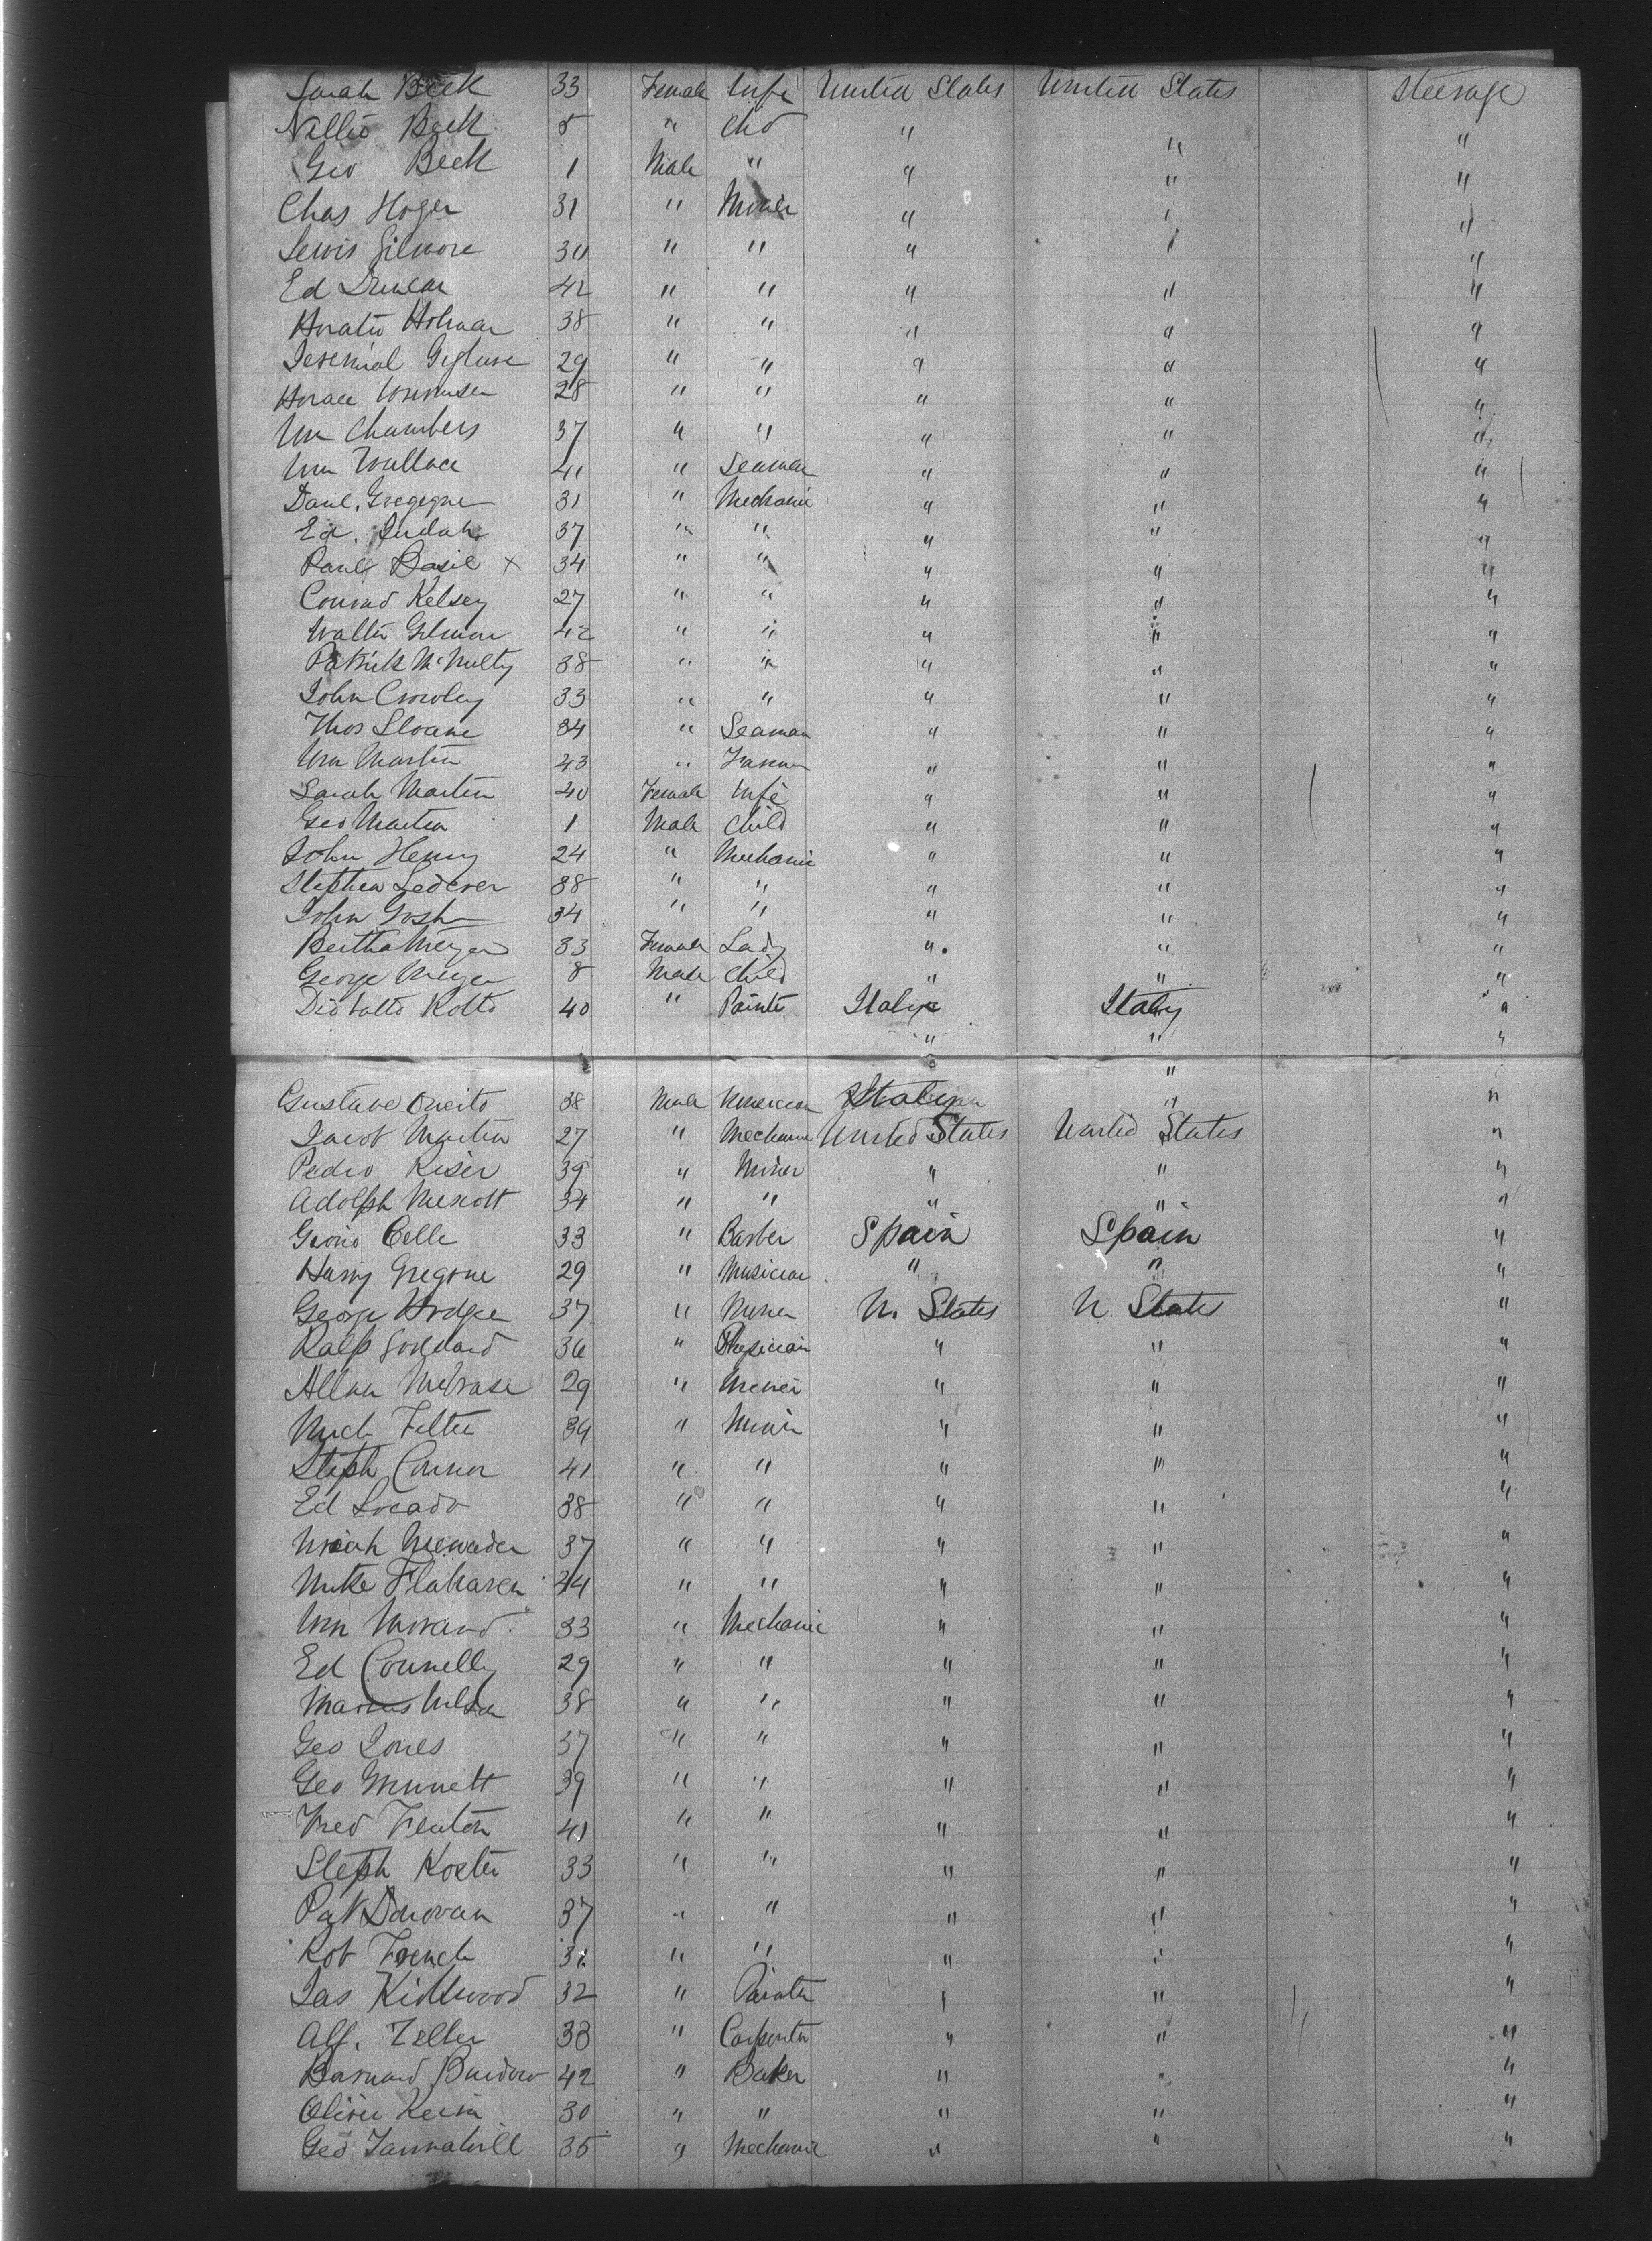 Sarah Beck 33 Female Wife United States United States Steerage
Nellie Beck 5 " Chd " " "
Geo Beck 1 Male " " " "
Chas Hoger 31 " Miner " " "
Lewis Gilmore 30 " " " " "
Ed Duncan 42 " " " " "
Horatio Holman 38 " " " " "
29 " " " " "
Horace 28 " " " " "
Wm Chambers 37 " " " " "
Wm Wallace 41 " Seaman " " "
Danl. 31 " Mechanic " " "
Ed. Judah 37 " " " " "
Paul Basil x 34 " " " " "
Conrad Kelsey 27 " " " " "
Walter Gilmore 42 " " " " "
Patrick McNulty 38 " " " " "
John Crowley 33 " " " " "
Thos Sloane 34 " Seaman " " "
Wm Martin 43 " Farmer " " "
Sarah Martin 40 Female Wife " " "
Geo Martin 1 Male Child " " "
John Henry 24 " Mechanic " " "
Stephen Lederer 38 " " " " "
John Gosh 34 " " " " "
Bertha Meyer 33 Female Lady " " "
George Meyer 8 Male Child " " "
Diotatto Rotto 40 " Painter Italy Italy "
" " "
"
Gustave 38 Male Musician Italy " "
Jacob Martin 27 " Mechanic United States United States "
Pedro Kiser 39 " Miner " " "
Adolph 34 " " " " "
Celle 33 " Barber Spain Spain "
Harry Gregone 29 " Musician " " "
George Hodge 37 " Miner U. States U States "
Ralp Goddard 36 " Physician " " "
Allan Melrose 29 " Miner " " "
Mich Felter 39 " Miner " " "
Steph Connor 41 " " " " "
Ed Locado 38 " " " " "
Uriah 37 " " " " "
Mike Flahaven 44 " " " " "
Wm Morand 33 " Mechanic " " "
Ed Connelly 29 " " " " "
Marcus Nelson 38 " " " " "
Geo Jones 37 " " " " "
Geo Munett 39 " " " " "
Fred Fenton 41 " " " " "
Steph Koster 33 " " " " "
Pat Donovan 37 " " " " "
Rob French 31 " " " " "
Jas Kirkwood 32 " Painter " " "
Alf. Zeller 33 " Carpenter " " "
Barnard 42 " Baker " " "
Oliver Keim 30 " " " " "
Geo Tannahill 35 " Mechanic " " "